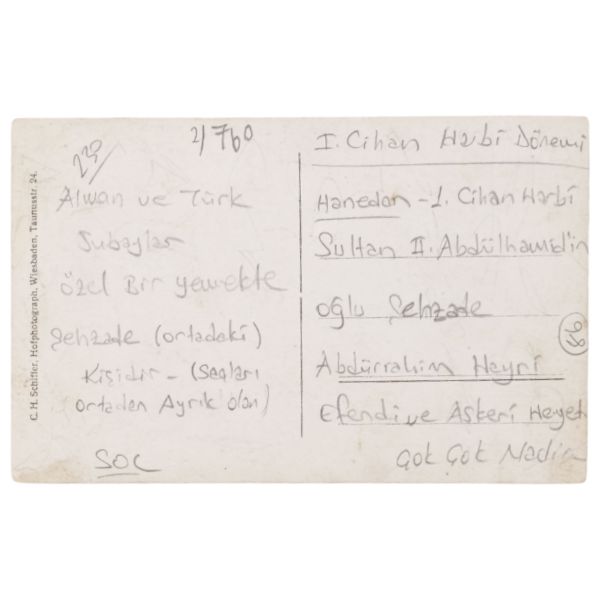 C. H. Schiffer, Hofphotograph, Wiesbaden, Taunusstr. 24.
230
2/760
Alman ve Türk
Subaylar
özel Bir yemekte
Şehzade (ortadeki)
Kişidir - (Saçları
ortadan Ayrık olan)
SOL
I. Cihan Harbi Dönemi
Hanedan - 1. Cihan Harbi
Sultan II. Abdülhamid'in
oğlu Şehzade
Abdürrahim Hayri
Efendi ve Askeri Heyet
Çok Çok Nadir
98